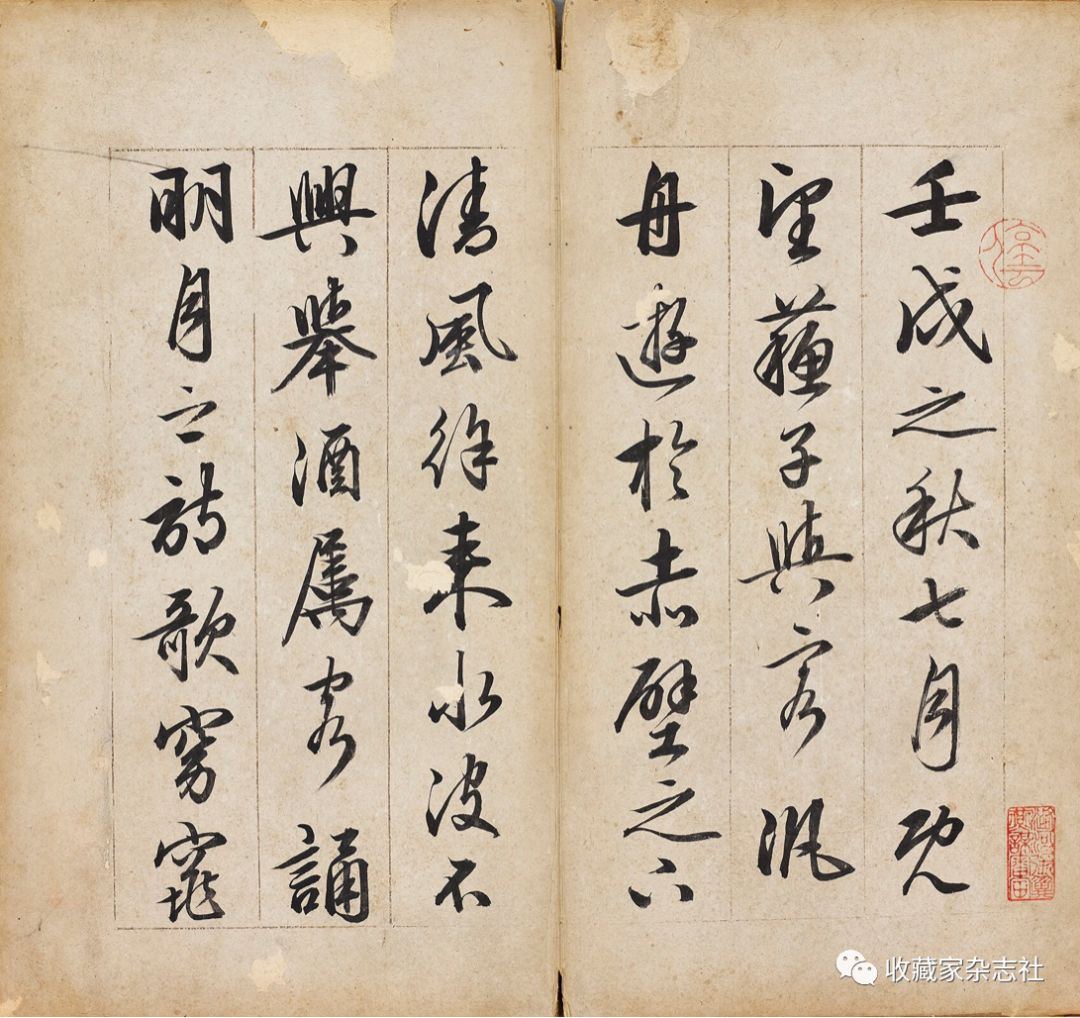 壬戌之秋七月既
望蘇子與客汎
舟遊於赤壁之下
清風徐来水波不
興舉酒屬客誦
明月之詩歌窈窕
收藏家杂志社